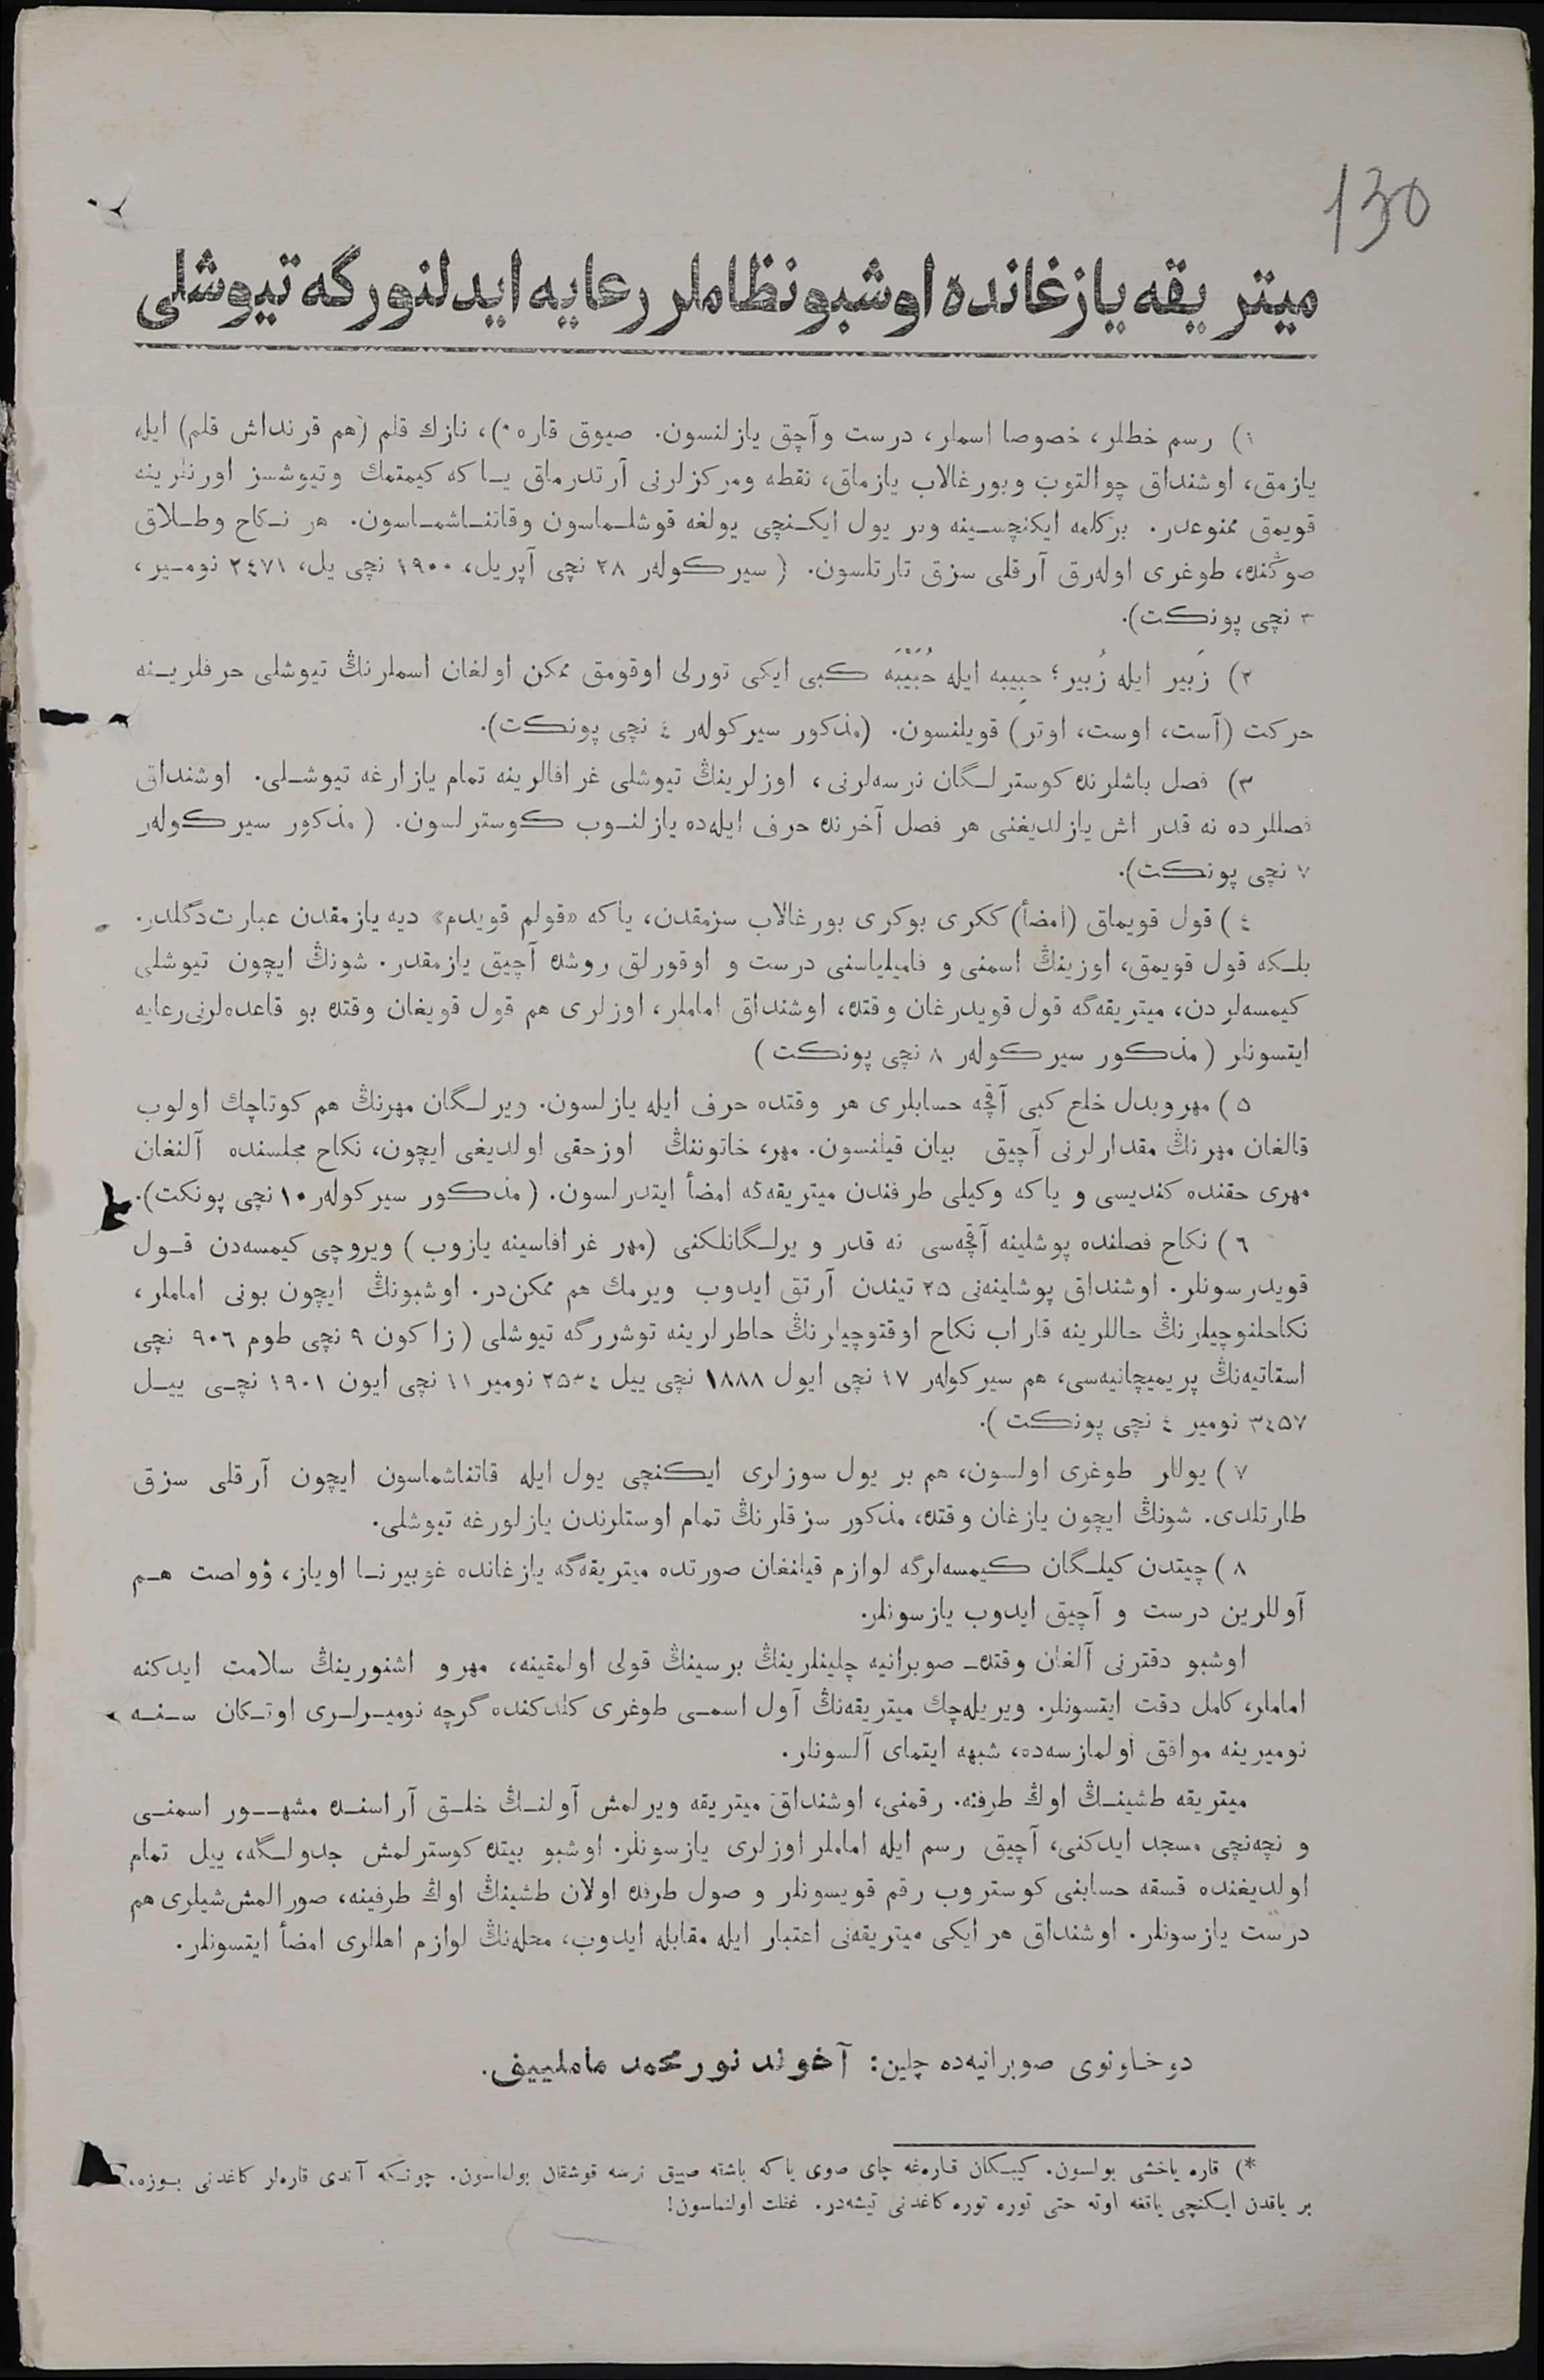 130
ميتريقه يازغانده اوشبو نظاملر رعايه ايدلنورگه تيوشلى
١) رسم خطلر، خصوصا اسملر، درست وآچق يازلنسون. صيوق قاره *)، نازك قلم (هم قرنداش قلم) ايله
يازمق، اوشنداق چوالتوب وبورغالاب يازماق، نقطه ومركزلرنى آرتدرماق يـا كه كيمتمك وتيوشسز اورنلرينه
قويمق ممنوعدر. بركلمه ايكنچسـينه وبر يول ايكـنچى يولغه قوشلـماسون وقاتنـاشمـاسون. هر نـكاح وطـلاق
صوڭنده، طوغرى اولەرق آرقلى سزق تارتلسون. (سيركولەر ٢٨ نچى آپريل، ١٩٠٠ نچى يل، ٢٤٧١ نومـير،
٣ نچى پونكت).
٢) زَبير ايله زُبير؛ حبِيبه ايله حُبَيْبَه كبى ايكى تورلى اوقومق ممكن اولغان اسملرنڭ تيوشلى حرفلريـنه
حركت (آست، اوست، اوتر) قويلنسون. (مذكور سيركولەر ٤ نچى پونكت).
٣) فصل باشلرنده كوسترلـگان نرسەلرنى، اوزلرينڭ تيوشلى غرافالرينه تمام يازارغه تيوشـلى. اوشنداق
فصللرده نه قدر اش يازلديغنى هر فصل آخرنده حرف ايلەده يازلنـوب كوسترلسون. (مذكور سيركولەر
٧ نچى پونكت).
٤) قول قويماق (امضأ) ككرى بوكرى بورغالاب سزمقدن، ياكه «قولم قويدم» ديه يازمقدن عبارت دگلدر.
بلـكه قول قويمق، اوزينڭ اسمنى و فاميلياسنى درست و اوقورلق روشده آچيق يازمقدر. شونڭ ايچون تيوشلى
كيمسەلردن، ميتريقەگه قول قويدرغان وقتده، اوشنداق اماملر، اوزلرى هم قول قويغان وقتده بو قاعدەلرنى رعايه
ايتسونلر (مذكور سيركولەر ٨ نچى پونكت)
٥) مهر وبدل خلع كبى آقچه حسابلرى هر وقتده حرف ايله يازلسون. ويرلـگان مهرنڭ هم كوتاچك اولوب
قالغان مهرنڭ مقدارلرنى آچيق بيان قيلنسون. مهر، خاتوننڭ اوزحقى اولديغى ايچون، نكاح مجلسنده آلنغان
مهرى حقنده كنديسى و ياكه وكيلى طرفندن ميتريقەگه امضأ ايتدرلسون. (مذكور سيركولەر ١٠ نچى پونكت).
٦) نكاح فصلنده پوشلينه آقچەسى نه قدر ويرلـگانلكنى (مهر غرافاسينه يازوب) ويروچى كيمسەدن قـول
قويدرسونلر. اوشنداق پوشلينەنى ٢٥ تيندن آرتق ايدوب ويرمك هم ممكن در. اوشبونڭ ايچون بونى اماملر،
نكاحلنوچيلرنڭ حاللرينه قاراب نكاح اوقتوچيلرنڭ خاطرلرينه توشررگه تيوشلى (زاكون ٩ نچى طوم ٩٠٦ نچى
استاتيەنڭ پريميچانيەسى، هم سيركولەر ١٧ نچى ايول ١٨٨٨ نچى ييل ٢٥٣٤ نومير ١١ نچى ايون ١٩٠١ نچـى ييـل
٣٤٥٧ نومير ٤ نچى پونكت).
٧) يوللر طوغرى اولسون، هم بر يول سوزلرى ايكنچى يول ايله قاتناشماسون ايچون آرقلى سزق
طارتلدى. شونڭ ايچون يازغان وقتده، مذكور سزقلرنڭ تمام اوستلرندن يازلورغه تيوشلى.
٨) چيتدن كيلـگان كيمسەلرگه لوازم قيلنغان صورتده ميتريقەگه يازغانده غوبيرنـا اوياز، ۋولصت هـم
آوللرين درست و آچيق ايدوب يازسونلر.
اوشبو دفترنى آلغان وقتده صوبرانيه چلينلرينڭ برسينڭ قولى اولمقينه، مهر و اشنورينڭ سلامت ايدكنه
اماملر، كامل دقت ايتسونلر. ويريلەچك ميتريقەنڭ آول اسمـى طوغرى كلدكنده گرچه نوميـرلـرى اوتـكان سـنـه
نوميرينه موافق اولمازسەده، شبهه ايتماى آلسونلر.
ميتريقه طشينـڭ اوڭ طرفنه. رقمنى، اوشنداق ميتريقه ويرلمش آولنـڭ خلـق آراسنـده مشهــور اسمنـى
و نچەنچى مسجد ايدكنى، آچيق رسم ايله اماملر اوزلرى يازسونلر. اوشبو بيتده كوسترلمش جدولـگه، ييل تمام
اولديغنده قسقه حسابنى كوستروب رقم قويسونلر و صول طرفده اولان طشينڭ اوڭ طرفينه، صورالمش شيلرى هم
درست يازسونلر. اوشنداق هر ايكى ميتريقەنى اعتبار ايله مقابله ايدوب، محلەنڭ لوازم اهللرى امضأ ايتسونلر.
دوخـاونوى صوبرانيەده چلين: آخوند نورمحمد ماملييف.
*) قاره ياخشى بولسون. كيبـكان قارەغه چاى صوى ياكه باشقه صيق نرسه قوشقان بولماسون. چونـكه آندى قارەلر كاغدنى بـوزه،
بر ياقدن ايـكنچى ياقغه اوته حتى توره توره كاغدنى تيشەدر. غفلت اولنماسون!